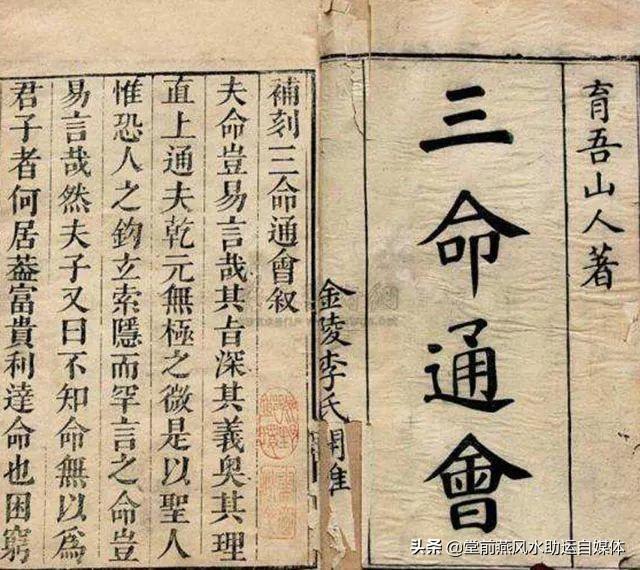 育吾山人著
三命通會
金陵李氏
補刻三命通會叙
夫命豈易言哉其旨深其義奥其理
直上通夫乾元無極之微是以聖人
惟恐人之鉤玄索隱而罕言之命豈
易言哉然夫子又曰不知命無以爲
君子者何居葢富貴利達命也困窮
头条 @堂前燕风水助运自媒体